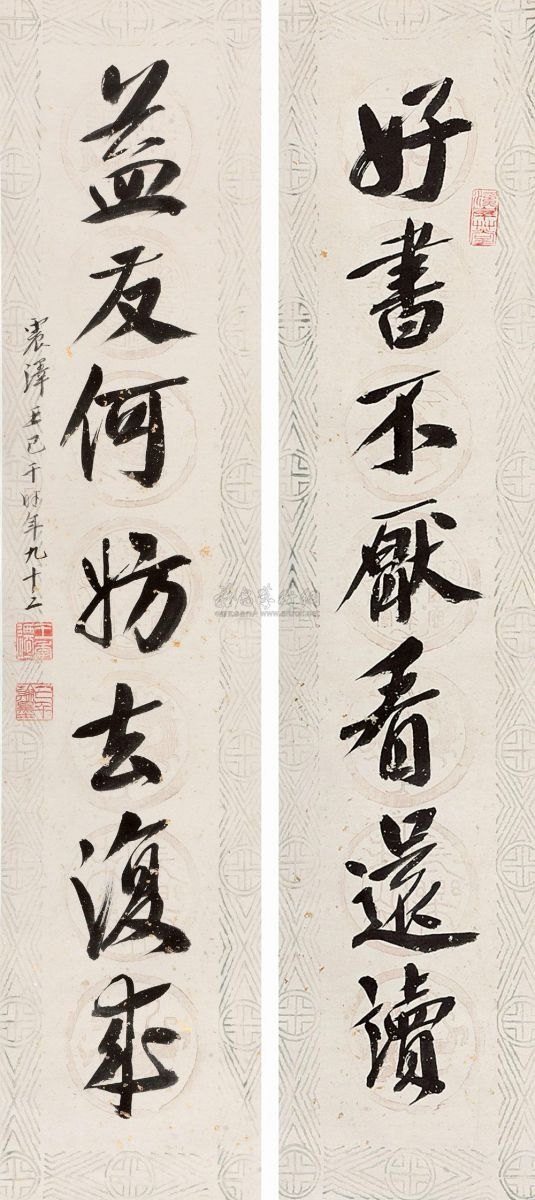 好書不厭看還讀
益友何妨去復来
震澤王己千時年九十二